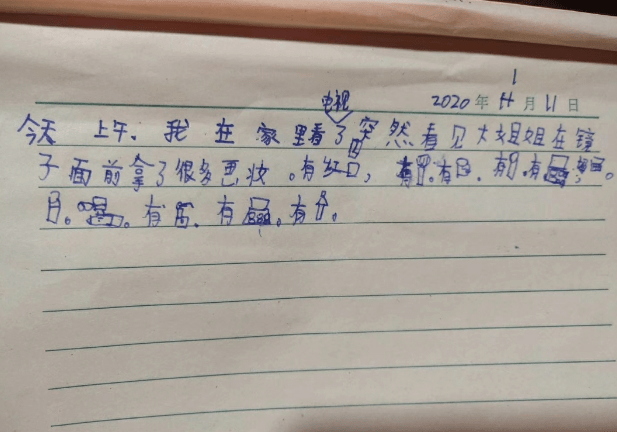 2020年1月11日
今天 上午. 我在家里看电视了突然看见大姐姐在镜
子面前拿了很多巴妆。有红口, 有.有.有.有。
有.有.有.